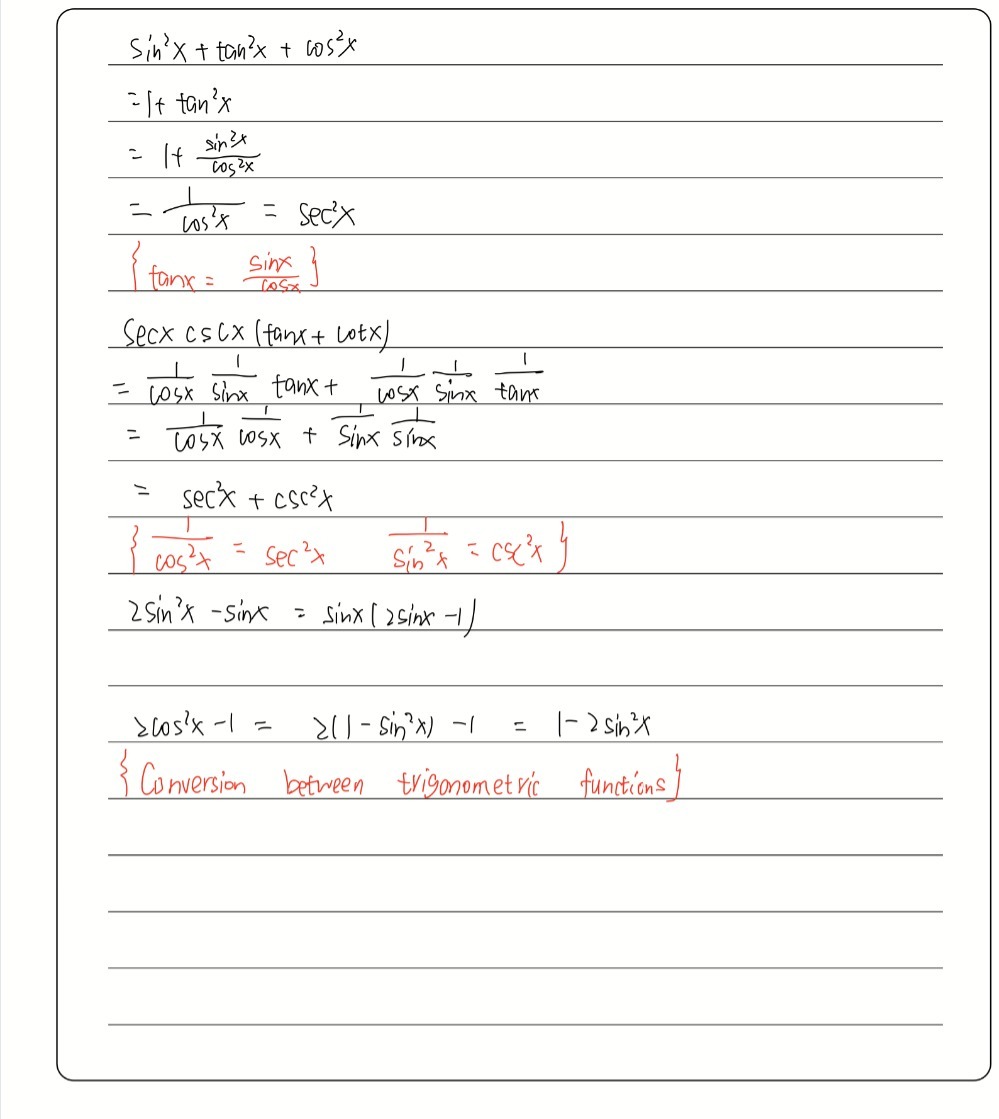 sin²x + tan²x + cos²x
= 1 + tan²x
= 1 + sin²x/cos²x
= 1/cos²x = sec²x
{tanx = sinx/cosx}
secx cscx (tanx + cotx)
= 1/cosx 1/sinx tanx + 1/cosx 1/sinx 1/tanx
= 1/cosx 1/cosx + 1/sinx 1/sinx
= sec²x + csc²x
{1/cos²x = sec²x 1/sin²x = csc²x}
2sin²x - sinx = sinx(2sinx - 1)
2cos²x - 1 = 2(1 - sin²x) - 1 = 1 - 2sin²x
{Conversion between trigonometric functions}